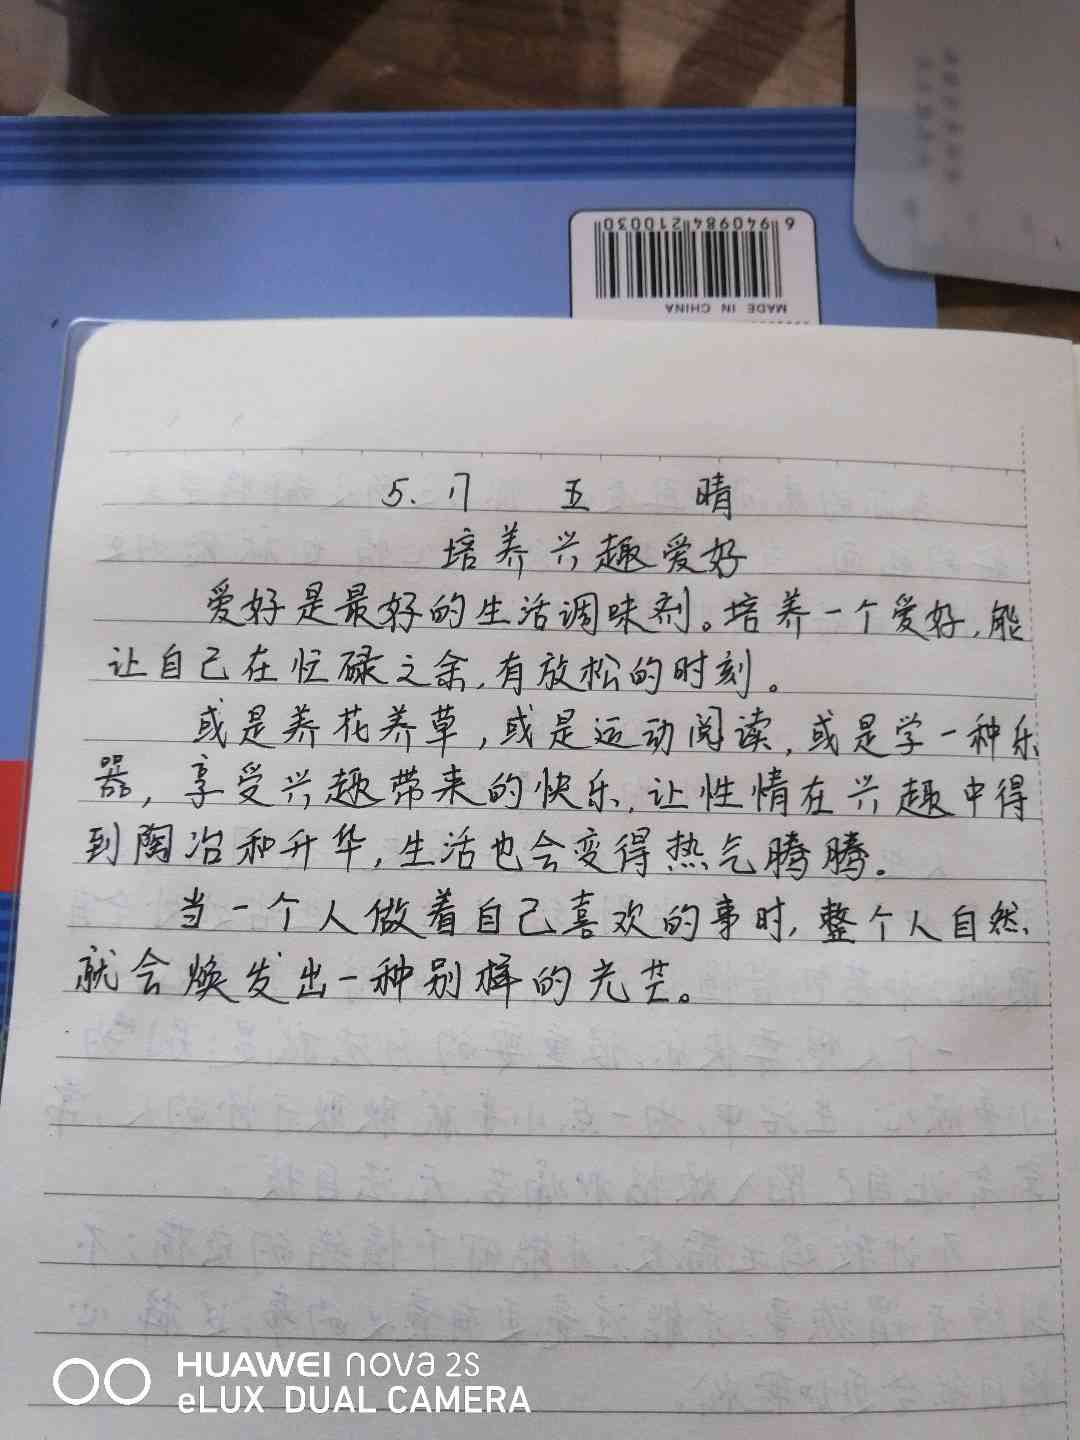 6940984210030
MADE IN CHINA
5.17 五 晴
培养兴趣爱好
爱好是最好的生活调味剂。培养一个爱好,能
让自己在忙碌之余,有放松的时刻。
或是养花养草,或是运动阅读,或是学一种乐
器,享受兴趣带来的快乐,让性情在兴趣中得
到陶冶和升华,生活也会变得热气腾腾。
当一个人做着自己喜欢的事时,整个人自然、
就会焕发出一种别样的光芒。
HUAWEI nova 2s
eLUX DUAL CAMERA